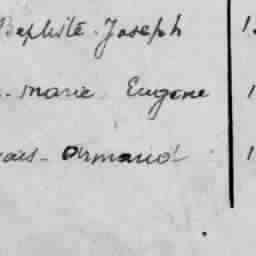 Baptiste Joseph 1
- Marie Eugene 1
Armand 1